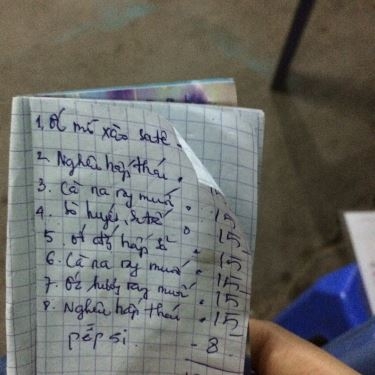 1. Ốc mỡ xào satế.
2. Nghêu hấp thái.
3. Cà na rang muối. 15
4. Sò huyết satế 15
5. Ốc đỏ hấp sả. 15
6. Cà na rang muối. 15
7. Ốc hương rang muối. 15
8. Nghêu hấp thái. 15
pépsi. - 8